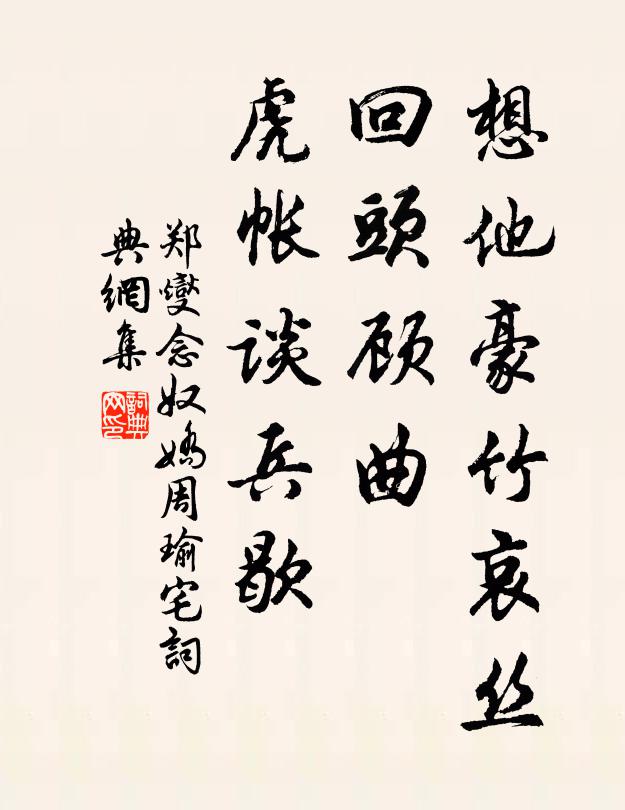 想他豪竹哀丝
回頭顾曲
虎帐谈兵歇
郑燮念奴嬌周瑜宅詞
典網集
詞典网印